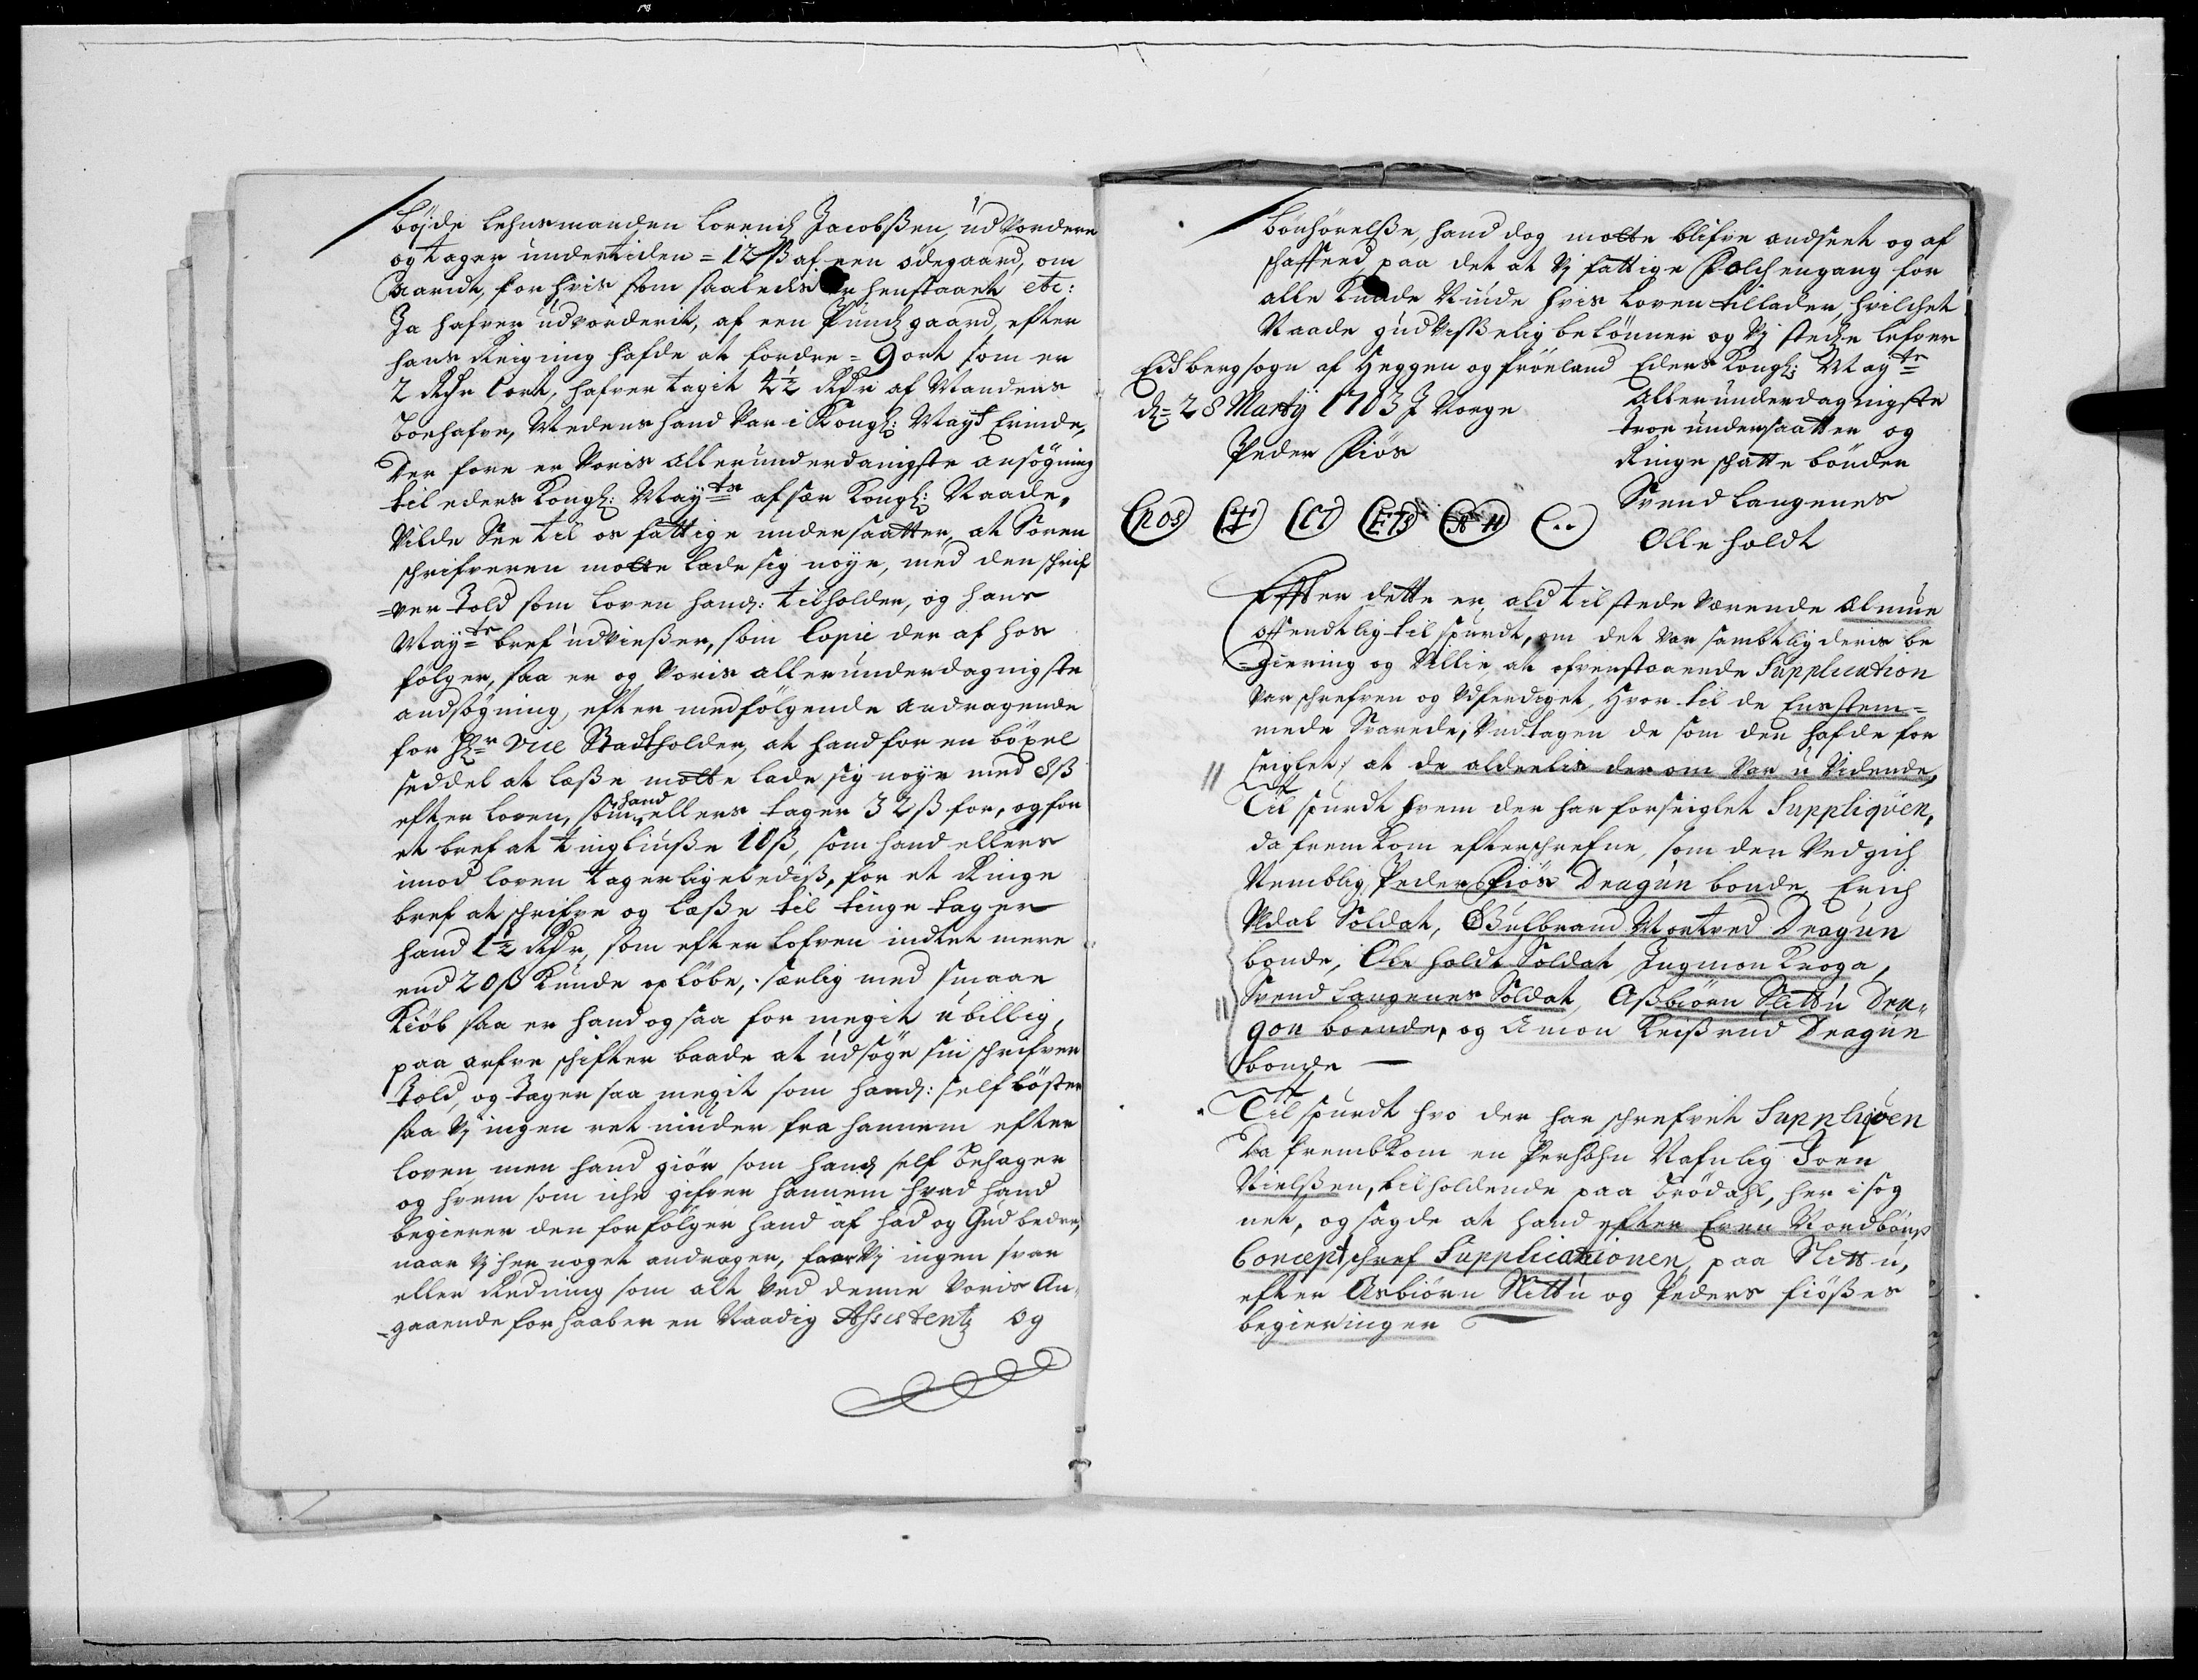 böyde lehnsmanden Lorendz Jacobßen, udvordere
og tager undertiden = 12 ß af een ödegaard, om
Aarit, for hvis som saaledes er henstaaet etc:
Ja hafver udvorderit, af een Pundz gaard, efter
hans Reigning hafde at fordre = 9 ort som er
2 Rdr 1 ort, hafver tagit 4½ Rdr af Mandens
boehafve, Medens hand var i Kongl: Mayt Erinde,
Der fore er Voris allerunderdanigste ansögning
til eders Kongl: Mayts af sær Kongl: Naade,
Vilde See til os fattige undersaatter, at Soren
schrifveren motte lade sig nöye, med den schrif
=ver Told som loven hand: tilholder, og hans
Mayts bref udvießer, som Copie der af hos
fölger, saa er og Voris allerunderdagnigste
andsögning, efter medfölgende Andragende
for Hr Vice Stadtholder, at hand for en böxel
seddel at læße motte lade sig nöye med 8 ß
efter loven, som hand ellers tager 32 ß for, og for
et bref at tingliuße 10 ß, som hand ellers
imod loven tager ligelediß, for et Ringe
bref at schrifve og læße til tinge tager
hand 1½ Rdr, som efter lofven indtet mere
end 20 ß Kunde oplöbe, særlig med smaae
Kiöb saa er hand og saa for megit ubillig,
paa arfve schifter baade at udsöge sin schrifver
Told, og tager saa megit som hand: self löster
saa Vj ingen ret nÿder fra hannem efter
loven, men hand giör som hand self behager
og hvem som iche gifver hannem hvad hand
begierer den forfölger hand af had og Gud bedre,
naar Vj her noget andrager, faar Vj ingen svar
eller Redning som alt ved denne Voris An¬
=gaaende forhaaber en Naadig Assistentz og
bönhörelße, hand dog motte blifve andseet og af
schaffed, paa det at Vj fattige Folch engang for
alle Kunde Niude hvis loven tillader, hvilchet
Naade gud visselig belönner og Vj stedze lefver
Eidsberg sogn af Heggen og fröeland Eders Kongl: Mayts
d= 28 Martÿ 1703 J Norge Allerunderdagnigste
troe undersaatter og
Peder Kiös Ringe schatte bönder
Svend Langenes
POS CI ETS Olle Holdt
Efter dette er ald tilstede værende Almue
offendtlig tilspurdt, om det var sambtlig deris be
=giering og Villie, at ofvenstaaende Supplication
var schrefven og Udferdiget, Hvor til de Eenstem¬
mede Svarede, Undtagen de som den hafde for
seiglet, at de aldeelis der om var u Vidende,
Til spurdt hvem der har forseiglet Suppliqven,
da fremkom efterschrefne, som der Vedgich
Nemblig Peder Kiös Dragun bonde, Erich
Udal Soldat, Gulbrand Mortved Dragun
bonde, Ole Holdt Soldat, Jngmon Kroga,
Svend Langenes Soldat, Aßbiörn Slittu Dra¬
gon boende, og Amon Krißrud Dragun
bonde
Til spurdt hvo der har schrefvet Suppliqven
Da frembkom en Persohn Nafnlig Joen
Nielßen, tilholdende paa Brödahl, her i sog
net, og sagde at hand efter Even Nordbönß
Concept schref Supplicationen, paa Slittu,
efter Asbiörn Slittu og Peder Kiößes
begieringer